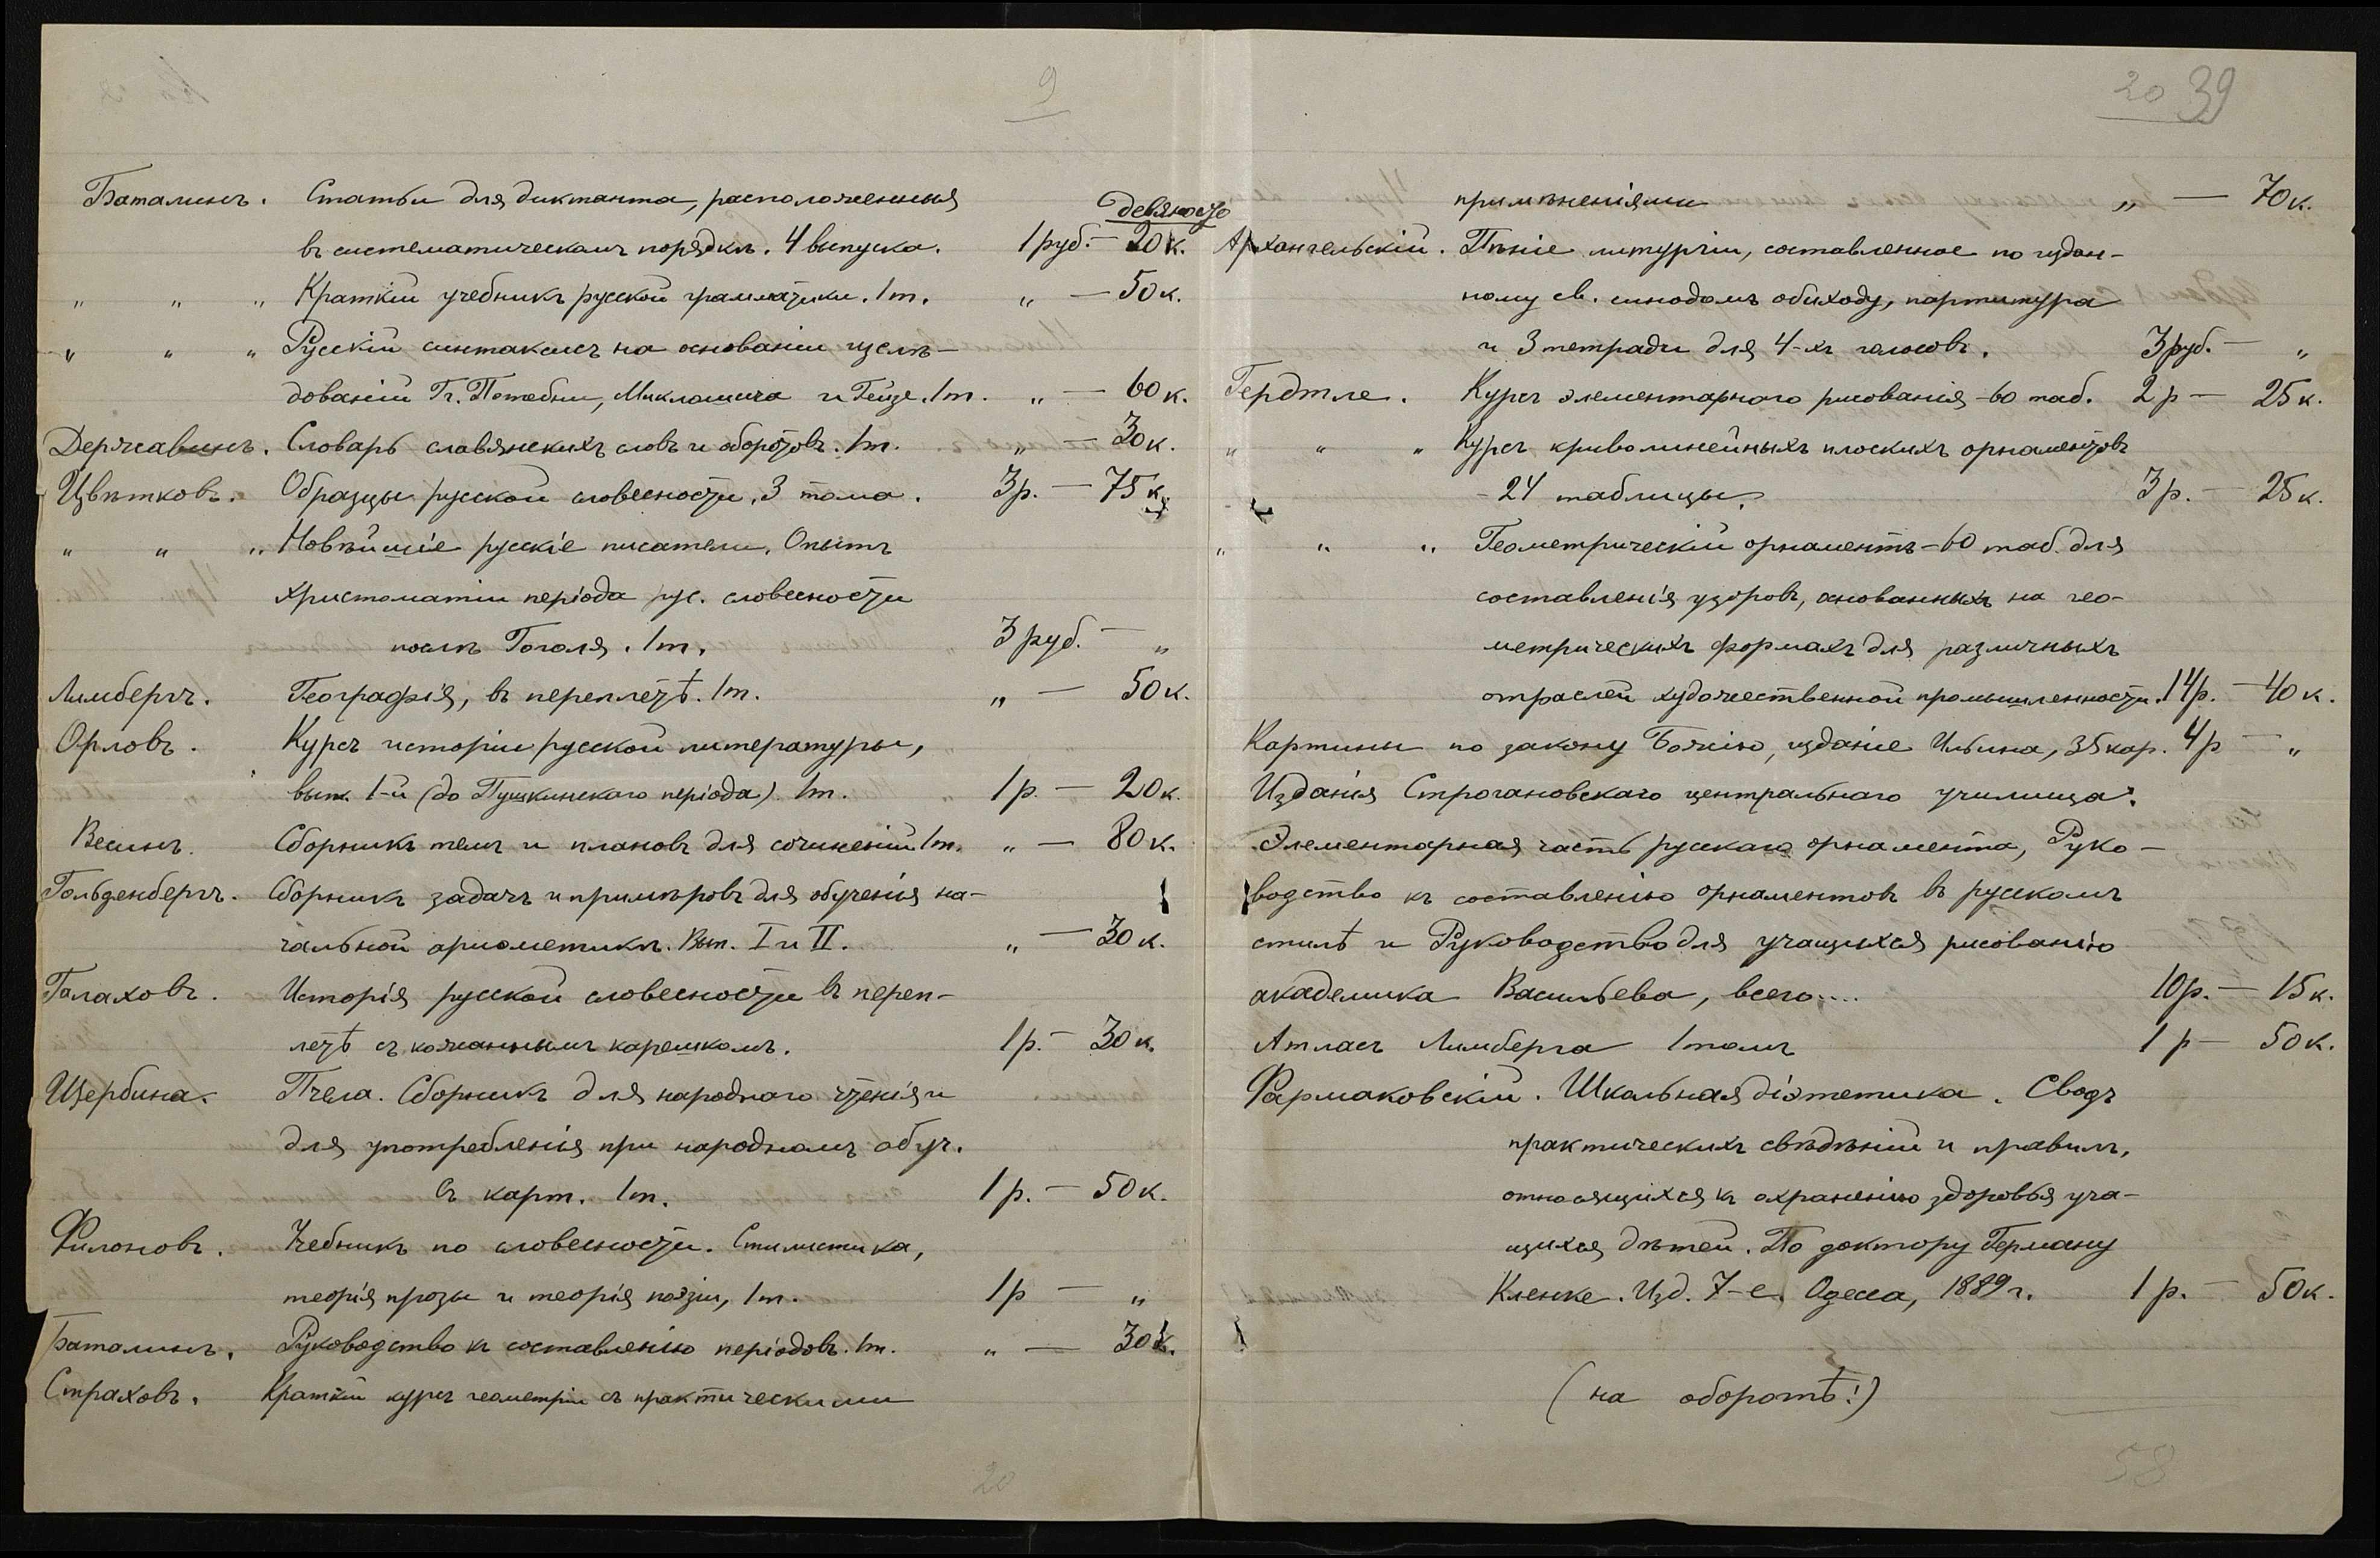 9
Баталинъ. Статьи для диктанта, расположенныя
девяносто
въ систематическомъ порядкѣ. 4 выпуска. 1 руб. — 20 к.
„ „ „ Краткій учебникъ русской грамматики. 1 т. „ — 50 к.
„ „ „ Русскій синтаксисъ на основаніи изслѣ-
дованій Гг. Потебни, Миклошича и Гейзе. 1 т. „ — 60 к.
Державинъ. Словарь славянскихъ словъ и оборотовъ. 1 т. „ — 30 к.
Цвѣтковъ. Образцы русской словесности, 3 тома. 3 р. — 75 к.
„ „ „ Новѣйшіе русскіе писатели. Опытъ
христоматіи періода рус. словесности
послѣ Гоголя. 1 т. 3 руб. — „
Лимбергъ. Географія, въ переплетѣ. 1 т. „ — 50 к.
Орловъ. Курсъ исторіи русской литературы,
вып. 1-й (до Пушкинскаго періода) 1 т. 1 р. — 20 к.
Весинъ. Сборникъ темъ и плановъ для сочиненій 1 т. „ — 80 к.
Гольденбергъ. Сборникъ задачъ и примѣровъ для обученія на-
чальной ариѳметикѣ. Вып. I и II. „ — 30 к.
Галаховъ. Исторія русской словесности въ переп-
летѣ съ кожаннымъ корешкомъ. 1 р. — 30 к.
Щербина. Пчела. Сборникъ для народнаго чтенія и
для употребленія при народномъ обуч.
съ карт. 1 т. 1 р. — 50 к.
Филоновъ. Учебникъ по словесности. Стилистика,
теорія прозы и теорія поэзіи, 1 т. 1 р — „
Баталинъ. Руководство къ составленію періодовъ. 1 т. „ — 30 к.
Страховъ. Краткій курсъ геометріи съ практическими
20
20 39
примѣненіями „ — 70 к.
Архангельскій. Пѣніе литургіи, составленное по издан-
ному св. синодомъ обиходу, партитура
и 3 тетради для 4-хъ голосовъ. 3 руб. — „
Гердтле. Курсъ элементарнаго рисованія - 60 таб. 2 р — 25 к.
„ „ „ Курсъ криволинейныхъ плоскихъ орнаментовъ
- 24 таблицы. 3 р. — 25 к.
„ „ „ Геометрическій орнаментъ - 60 таб. для
составленія узоровъ, основанныхъ на гео-
метрическихъ формахъ для различныхъ
отраслей художественной промышленности. 14 р. — 40 к.
Картины по закону Божію, изданіе Ильина, 35 кар. 4 р — „
Изданія Строгановскаго центральнаго училища:
Элементарная часть русскаго орнамента, Руко-
водство къ составленію орнаментовъ въ русскомъ
стилѣ и Руководство для учащихся рисованію
академика Васильева, всего.... 10 р. — 15 к.
Атласъ Лимберга 1 томъ 1 р — 50 к.
Фармаковскій. Школьная діэтетика. Сводъ
практическихъ свѣдѣній и правилъ,
относящихся къ охраненію здоровья уча-
щихся дѣтей. По доктору Герману
Кленке. Изд. 7-е. Одесса, 1889 г. 1 р. — 50 к.
(на оборотѣ!)
58